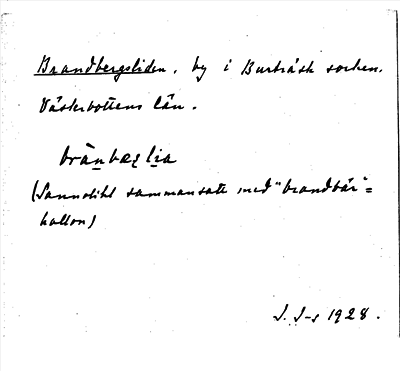 Brandbergsliden, by i Burträsk socken.
Västerbottens län.
brànbæɽ lia
(Sannolikt sammansatt med "brandbär" =
hallon)
J. J-s 1928.